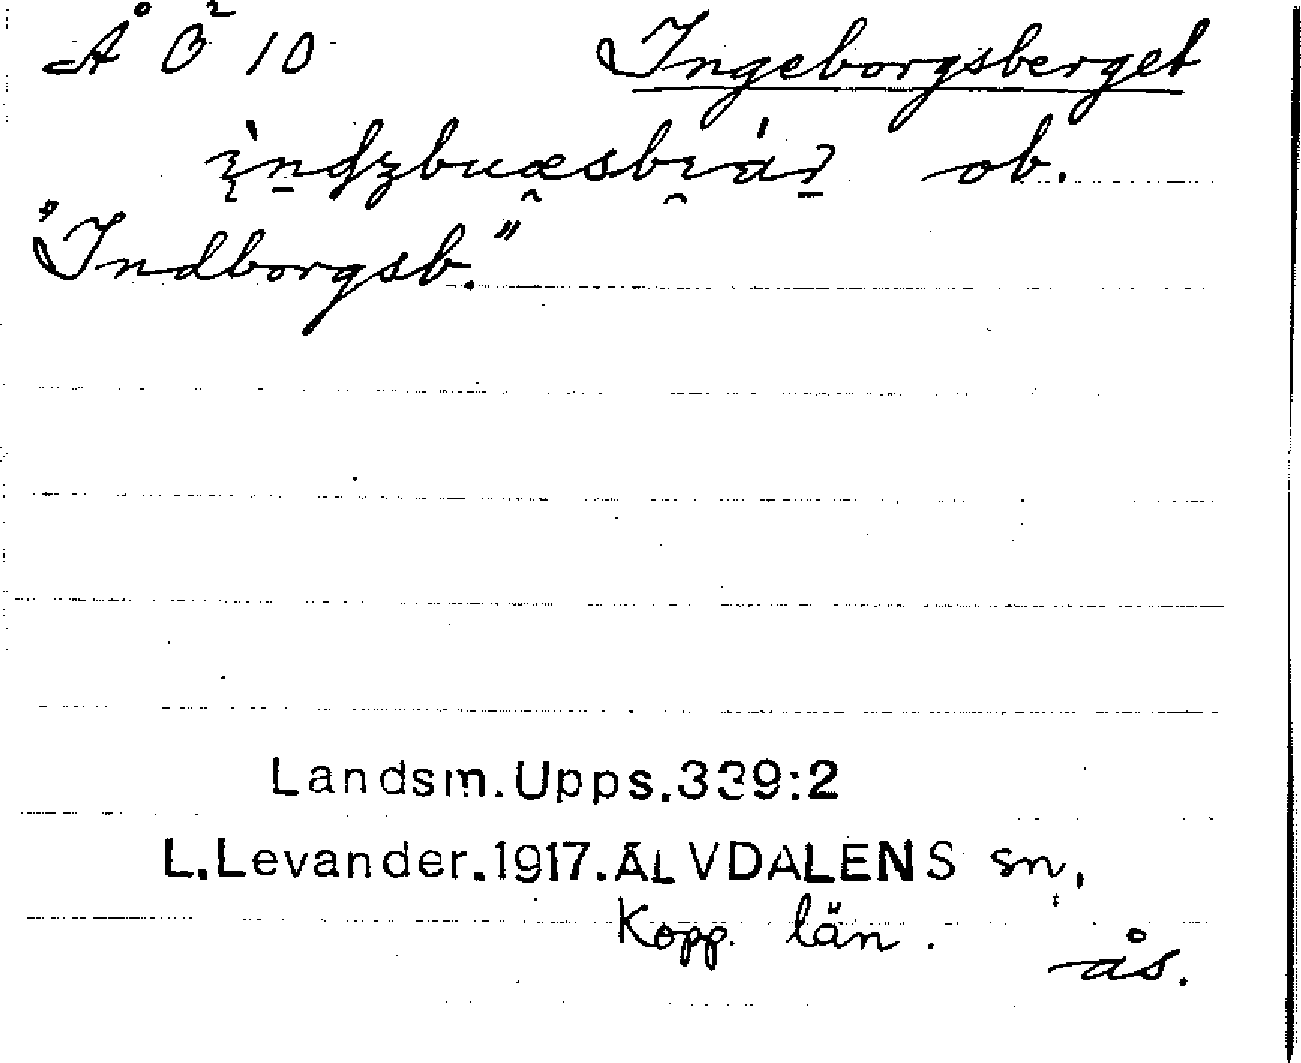 Å Ö² 10 Ingeborgsberget
ob.
"Indborgsb."
Landsm.Upps.339:2
L.Levander.1917.ÄLVDALENS sn,
Kopp. län.
ås.